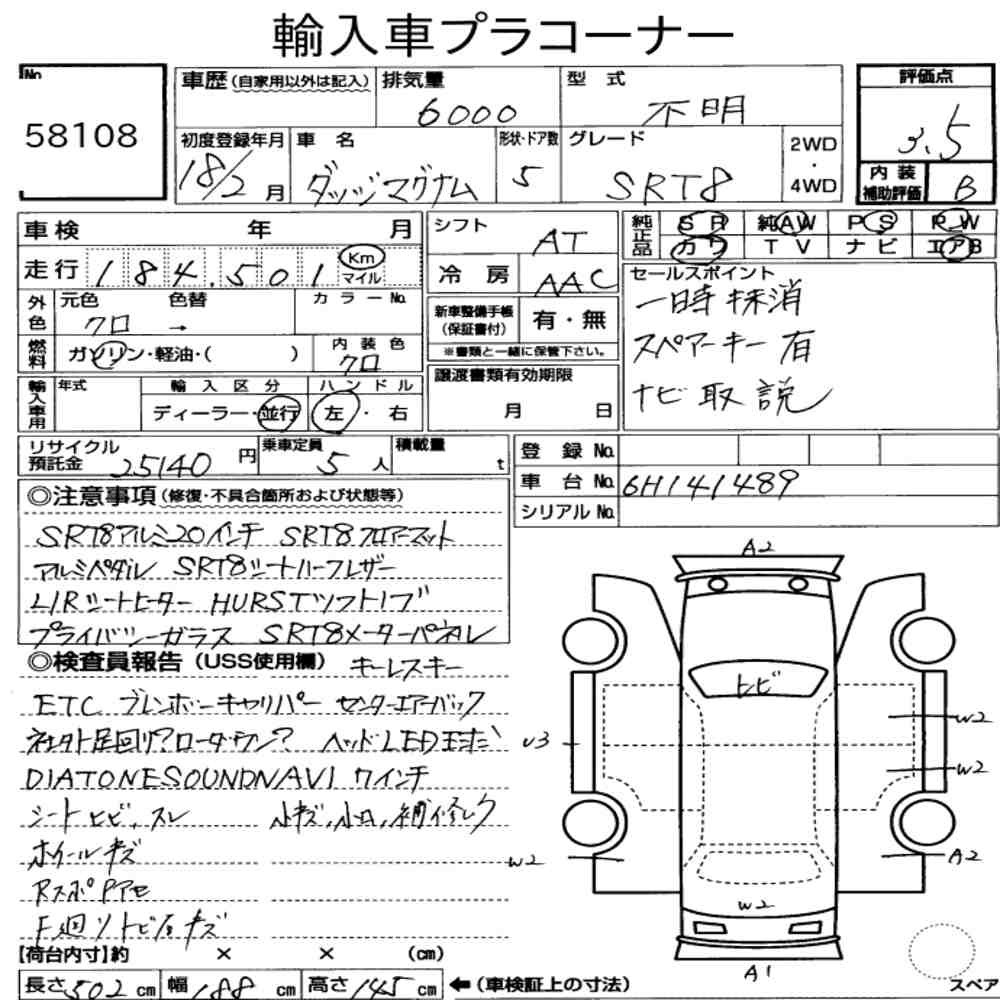 輸入車プラコーナー
No 58108
車歴(自家用以外は記入) 排気量 6000 型式 不明
評価点 3.5
初度登録年月 18/2月 車名 ダッジマグナム 形状・ドア数 5 グレード SRT8 2WD・4WD
内装補助評価 B
車検 年 月
走行 184,501 Km マイル
シフト AT
冷房 AAC
純正品 SR 純AW PS PW
カワ TV ナビ エアB
外色 元色 クロ 色替 → カラーNo.
燃料 ガソリン・軽油・( ) 内装色 クロ
新車整備手帳(保証書付) 有・無
※書類と一緒に保管下さい。
セールスポイント
一時抹消
スペアーキー有
ナビ取説
輸入車用 年式 輸入区分 ディーラー・並行 ハンドル 左・右
譲渡書類有効期限 月 日
リサイクル預託金 25140円 乗車定員 5人 積載量 t
登録No.
車台No. 6H141489
シリアルNo.
◎注意事項(修復・不具合箇所および状態等)
SRT8アルミ20インチ SRT8フロアーマット
アルミペダル SRT8シートハーフレザー
L/Rシートヒーター HURSTシフトノブ
プライバシーガラス SRT8メーターパネル
◎検査員報告(USS使用欄) キーレスキー
ETC ブレンボーキャリパー センターエアーバック
社外足回り?ローダウン? ヘッドLED
DIATONESOUNDNAVI 7インチ
シートヒビ,スレ 小キズ,小凹,
ホイールキズ
RスポPアセ
F廻りトビ石キズ
A2
ヒビ
U3
W2
W2
W2
A2
W2
A1
スペア
【荷台内寸】約 × × (cm)
長さ502cm 幅188cm 高さ145cm ←(車検証上の寸法)